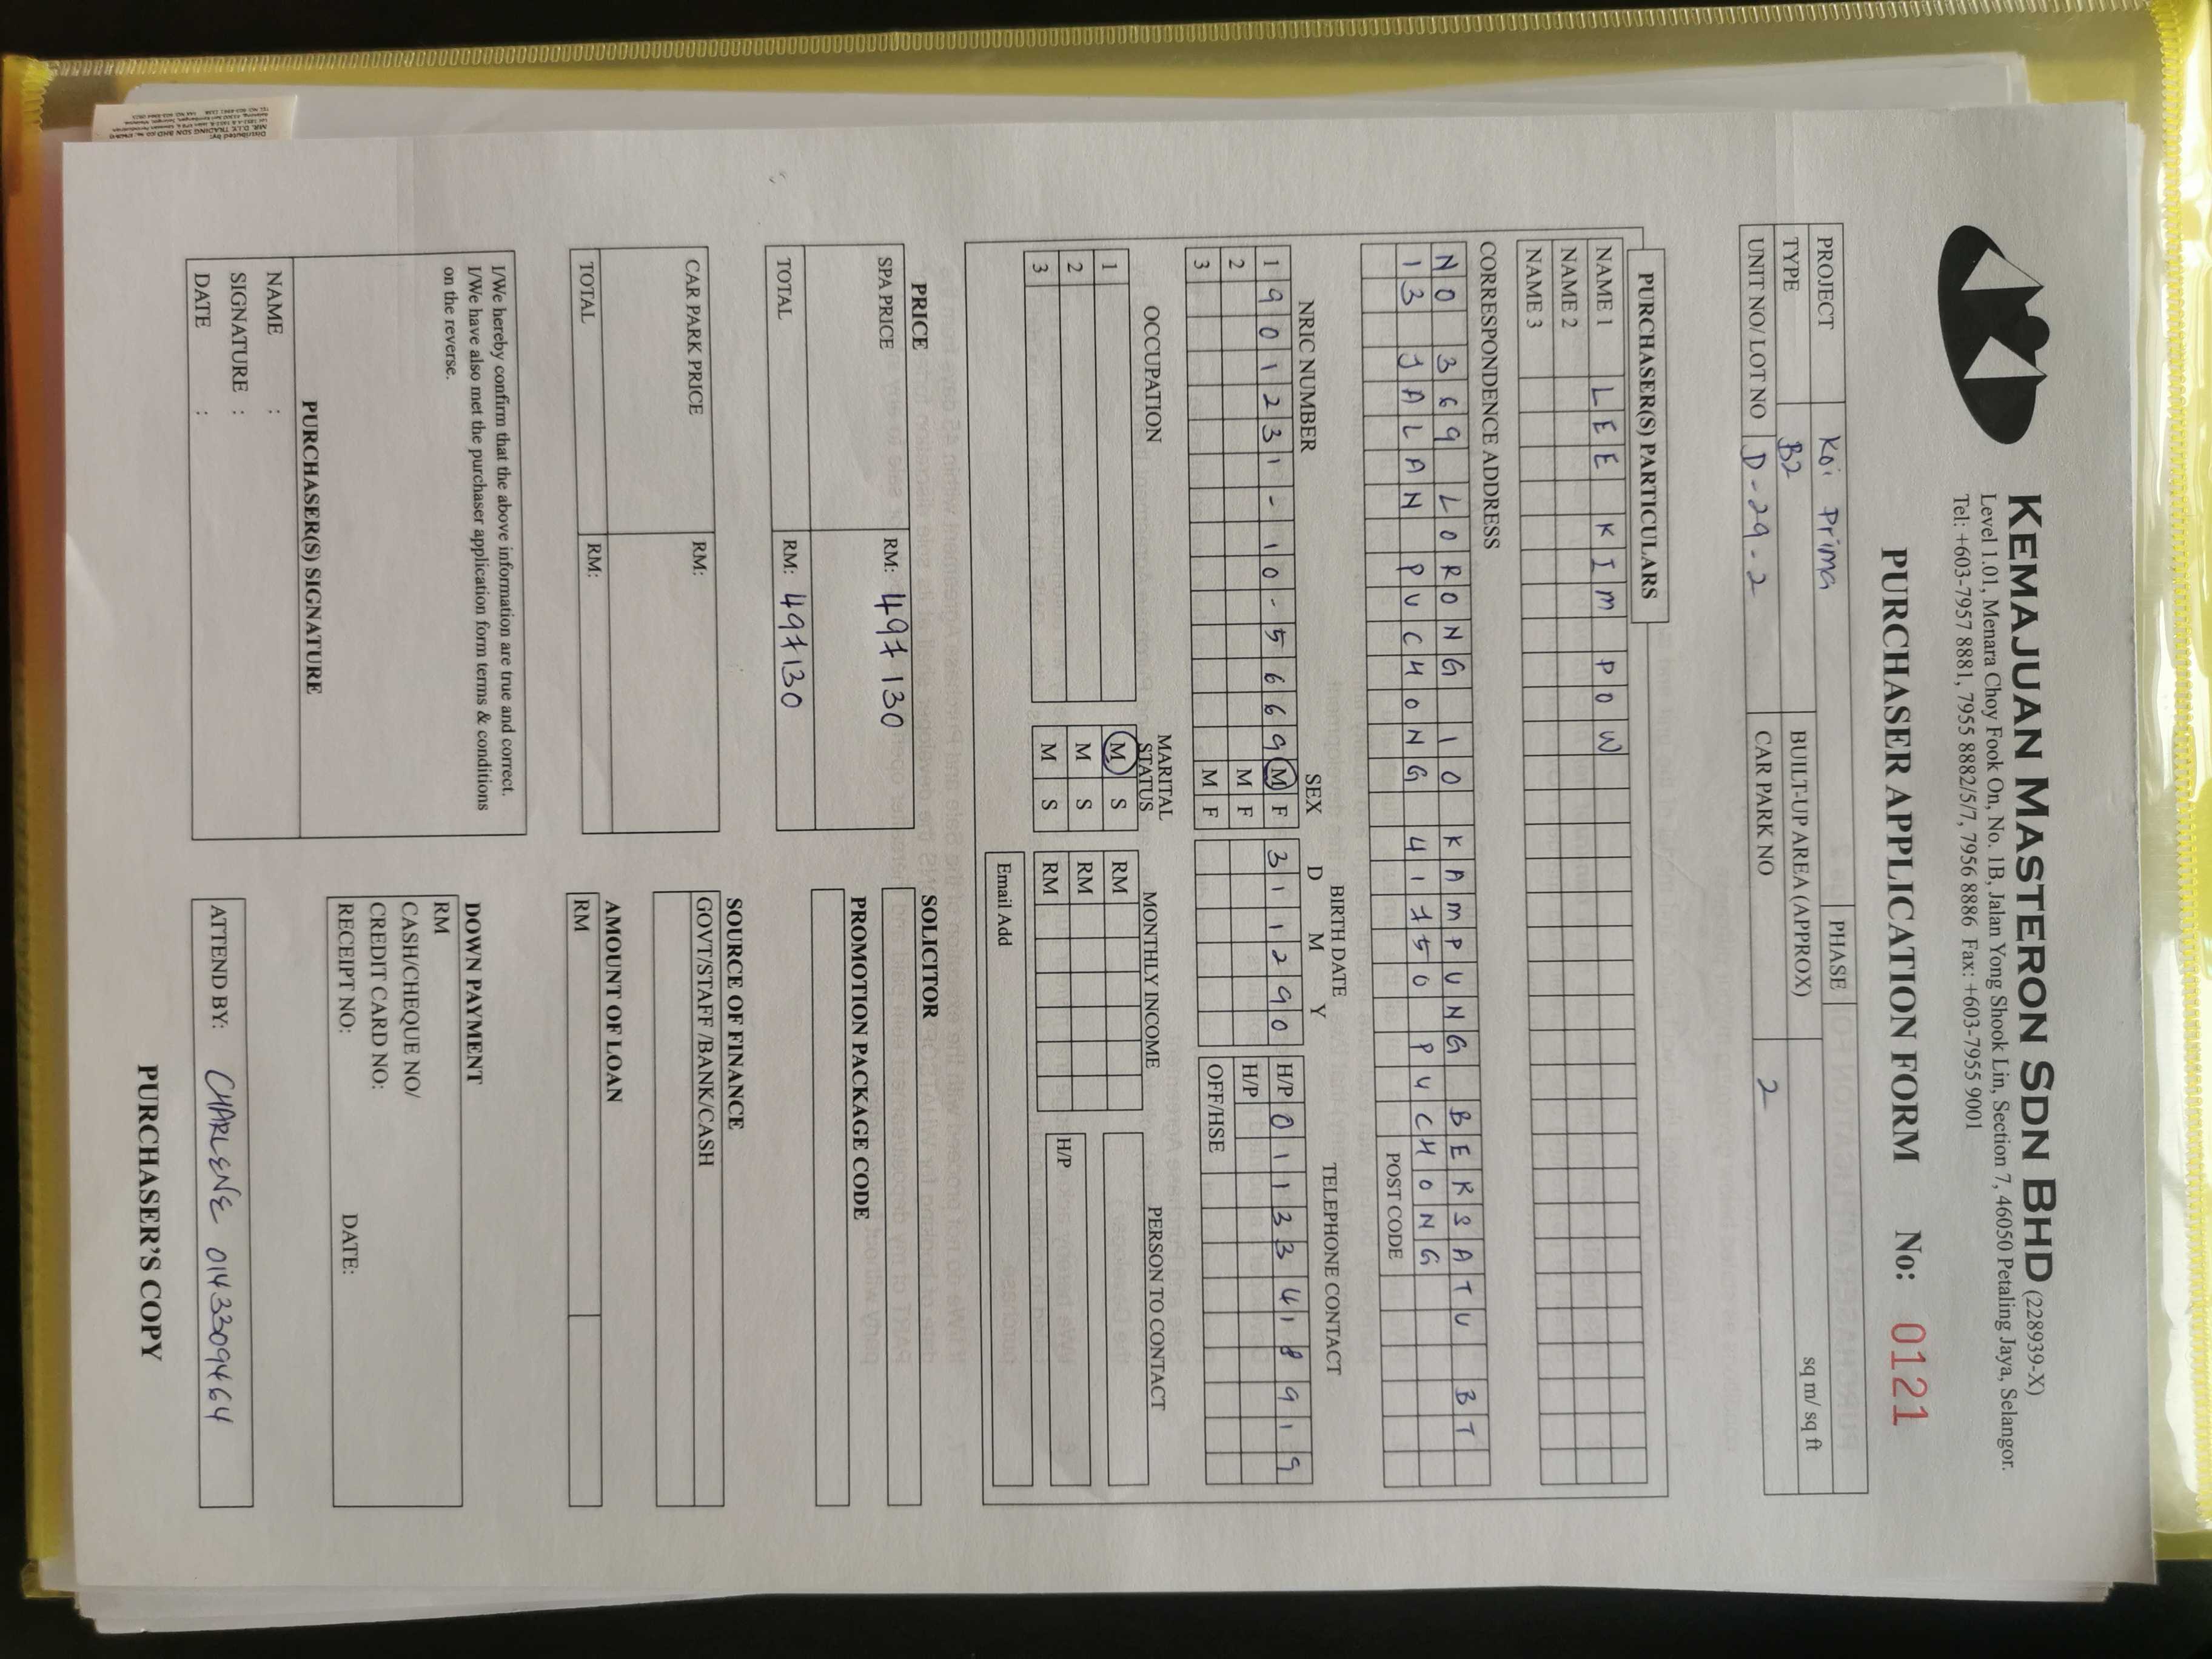 KEMAJUAN MASTERON SDN BHD (228939-X)
Level 1.01, Menara Choy Fook On, No. 1B, Jalan Yong Shook Lin, Section 7, 46050 Petaling Jaya, Selangor.
Tel: +603-7957 8881, 7955 8882/5/7, 7956 8886 Fax: +603-7955 9001
PURCHASER APPLICATION FORM No: 0121
PROJECT Koi Prima PHASE
TYPE B2 BUILT-UP AREA (APPROX) sq m/ sq ft
UNIT NO/ LOT NO D-29-2 CAR PARK NO 2
PURCHASER(S) PARTICULARS
NAME 1 LEE KIM POW
NAME 2
NAME 3
CORRESPONDENCE ADDRESS
NO 369 LORONG 10 KAMPUNG BERSATU BT
13 JALAN PUCHONG 47150 PUCHONG
POST CODE
NRIC NUMBER SEX BIRTH DATE TELEPHONE CONTACT
D M Y
1 901231-10-5669 M F 311290 H/P 01133418919
2 M F H/P
3 M F OFF/HSE
OCCUPATION MARITAL STATUS MONTHLY INCOME PERSON TO CONTACT
1 M S RM
2 M S RM H/P
3 M S RM
Email Add
PRICE
SPA PRICE RM: 497 130
TOTAL RM: 497130
CAR PARK PRICE RM:
TOTAL RM:
I/We hereby confirm that the above information are true and correct.
I/We have also met the purchaser application form terms & conditions
on the reverse.
PURCHASER(S) SIGNATURE
NAME :
SIGNATURE :
DATE :
SOLICITOR
PROMOTION PACKAGE CODE
SOURCE OF FINANCE
GOVT/STAFF /BANK/CASH
AMOUNT OF LOAN
RM
DOWN PAYMENT
RM
CASH/CHEQUE NO/
CREDIT CARD NO:
RECEIPT NO: DATE:
ATTEND BY: CHARLENE 0143309464
PURCHASER'S COPY
Distributed by: